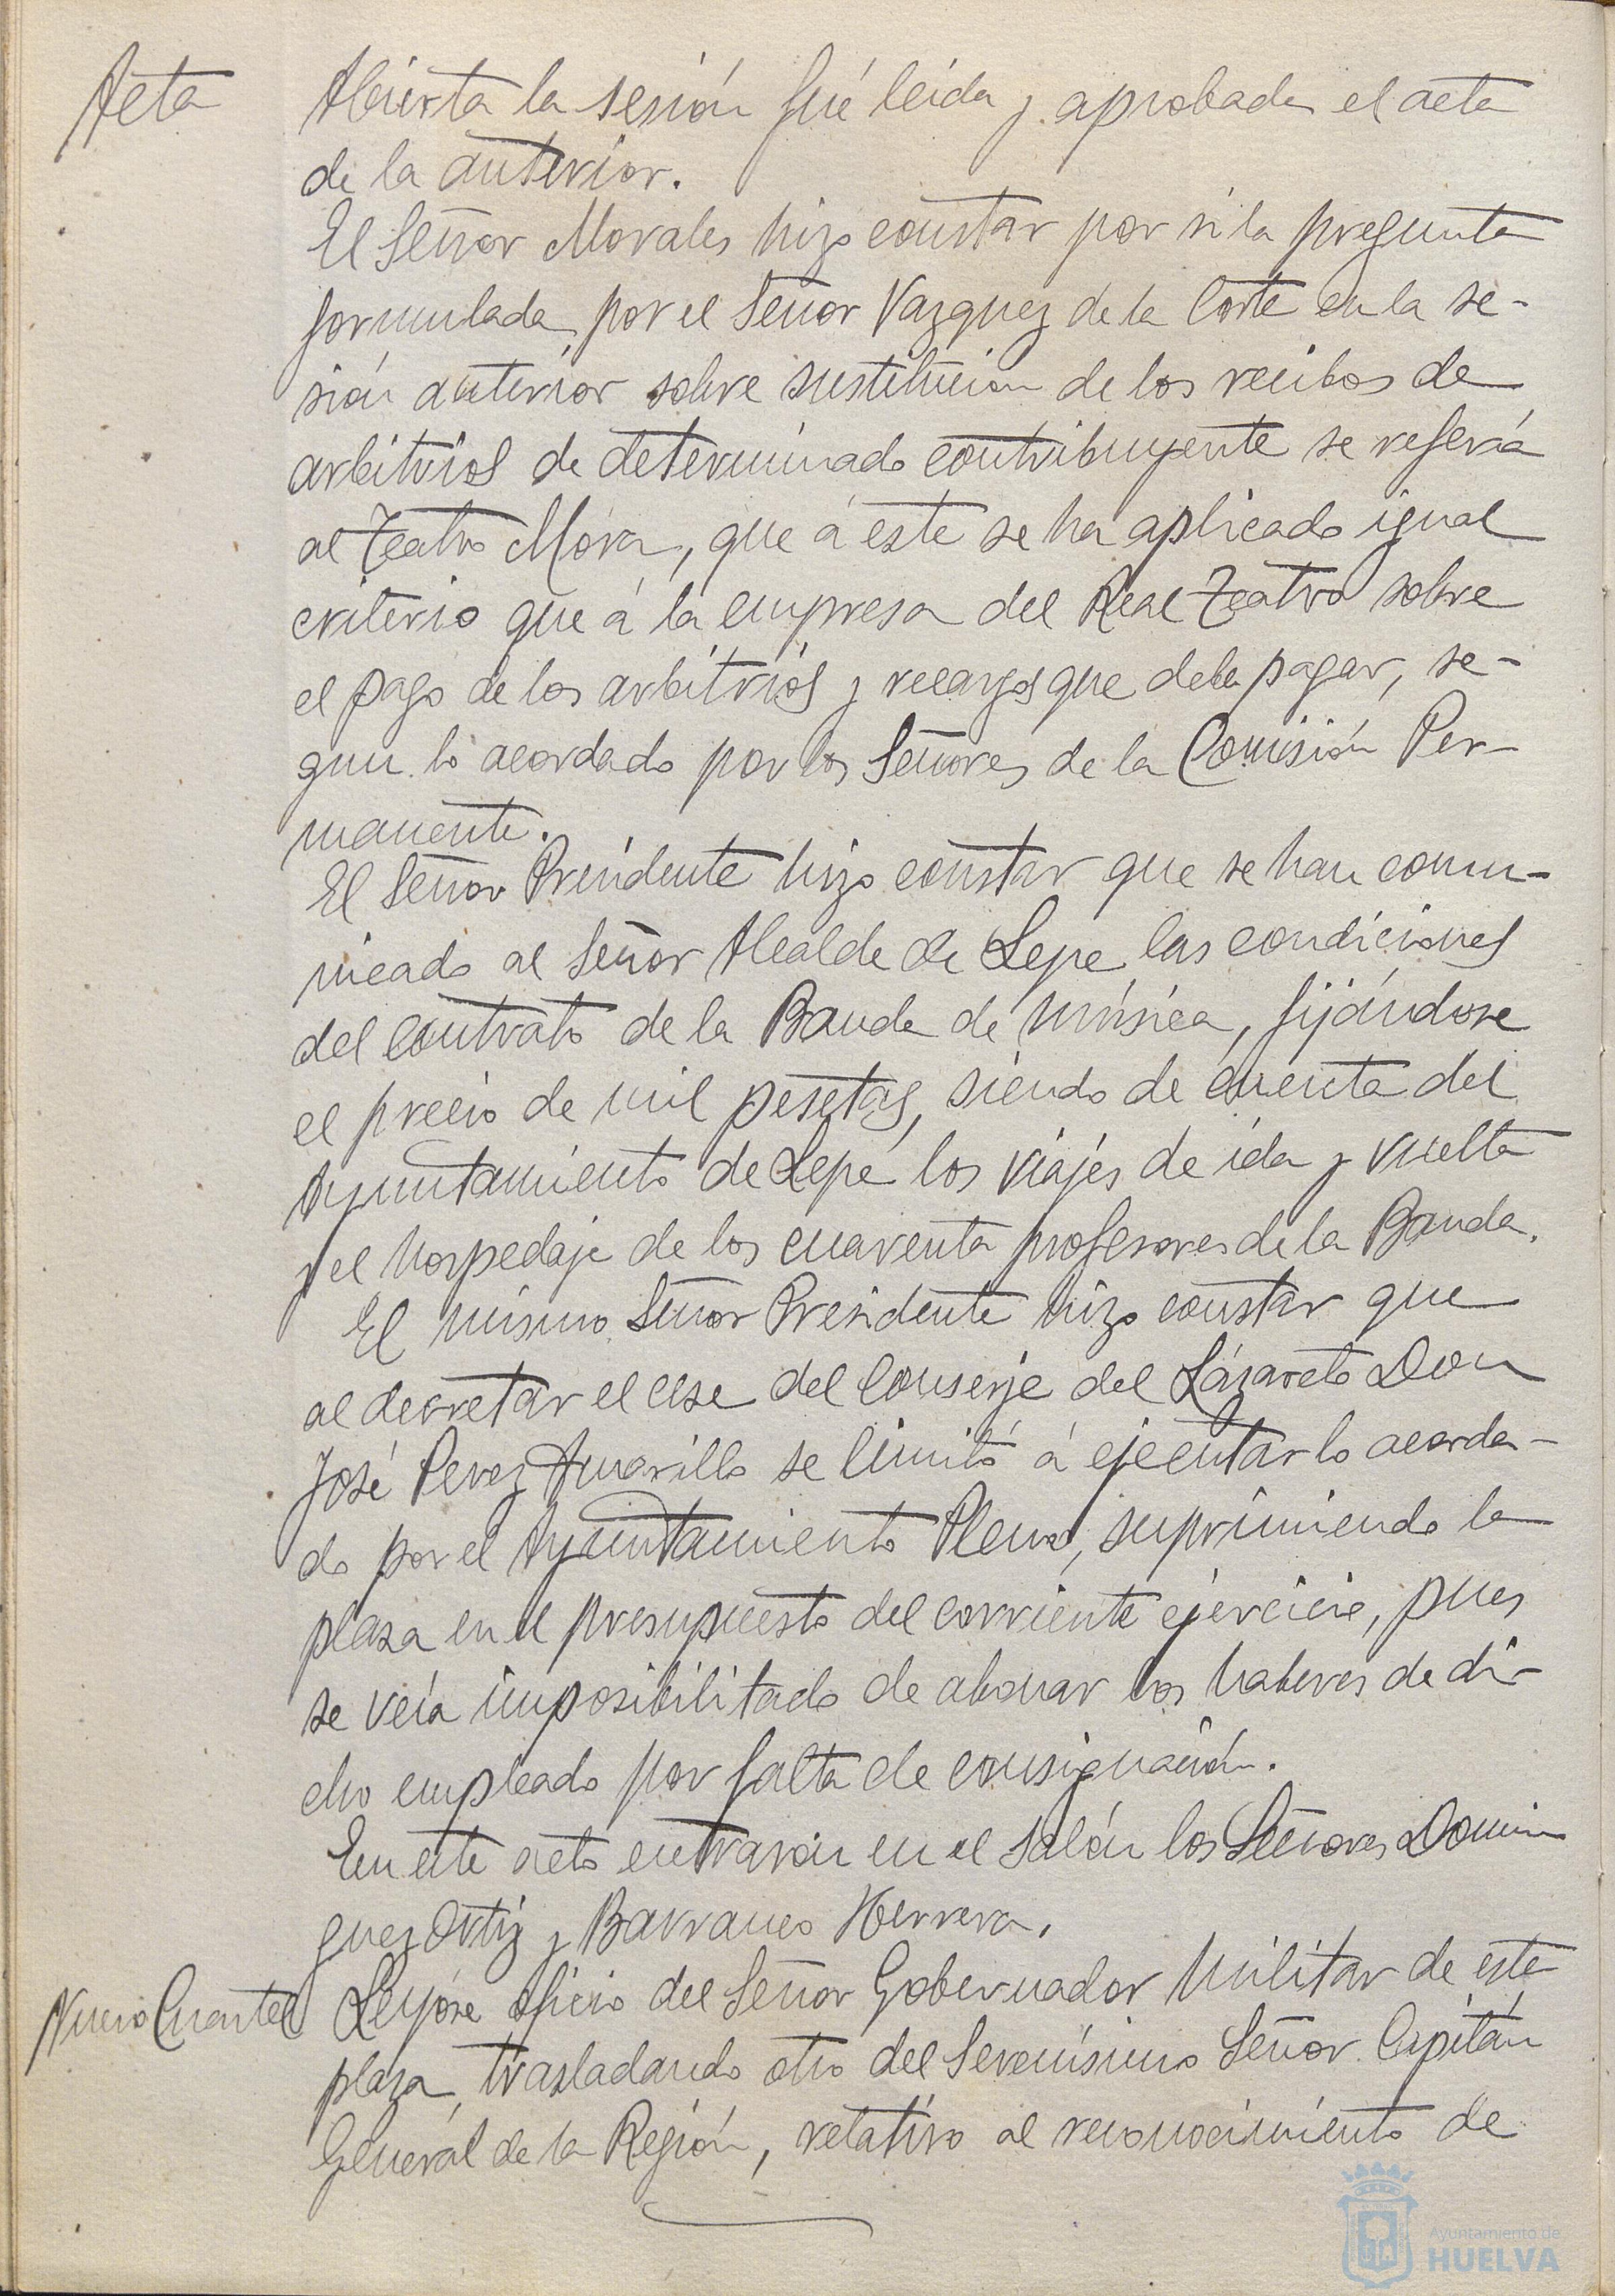 Acta
Abierta la sesión fué leida y aprobada el acta
de la anterior.
El Señor Morales hizo constar por si la pregunta
formulada por el Señor Vazquez de la Corte en la se-
sión anterior sobre sustitucion de los recibos de
arbitrios de determinado contribuyente se referia
al Teatro Mora, que á este se ha aplicado igual
criterio que á la empresa del Real Teatro sobre
el pago de los arbitrios y recargos que debe pagar, se-
gun lo acordado por los Señores de la Comisión Per-
manente.
El Señor Presidente hizo constar que se han comu-
nicado al Señor Alcalde de Lepe las condiciones
del contrato de la Banda de música, fijándose
el precio de mil pesetas, siendo de cuenta del
Ayuntamiento de Lepe los viajes de ida y vuelta
y el hospedaje de los cuarenta profesores de la Banda.
El mismo Señor Presidente hizo constar que
al decretar el cese del Conserje del Lázareto Don
José Perez Amarillo se limitó á ejecutar lo acorda-
do por el Ayuntamiento Pleno, suprimiendo la
plaza en el presupuesto del corriente ejercicio, pues
se veía imposibilitado de abonar los haberes de di-
cho empleado por falta de consignación.
En este acto entraron en el salón los Señores Domin
guez Ortiz y Barranco Herrera.
Nuevo Cuartel
Leyóse oficio del Señor Gobernador Militar de esta
plaza, trasladando otro del Serenísimo Señor Capitán
General de la Región, relativo al reconocimiento de
Ayuntamiento de
HUELVA